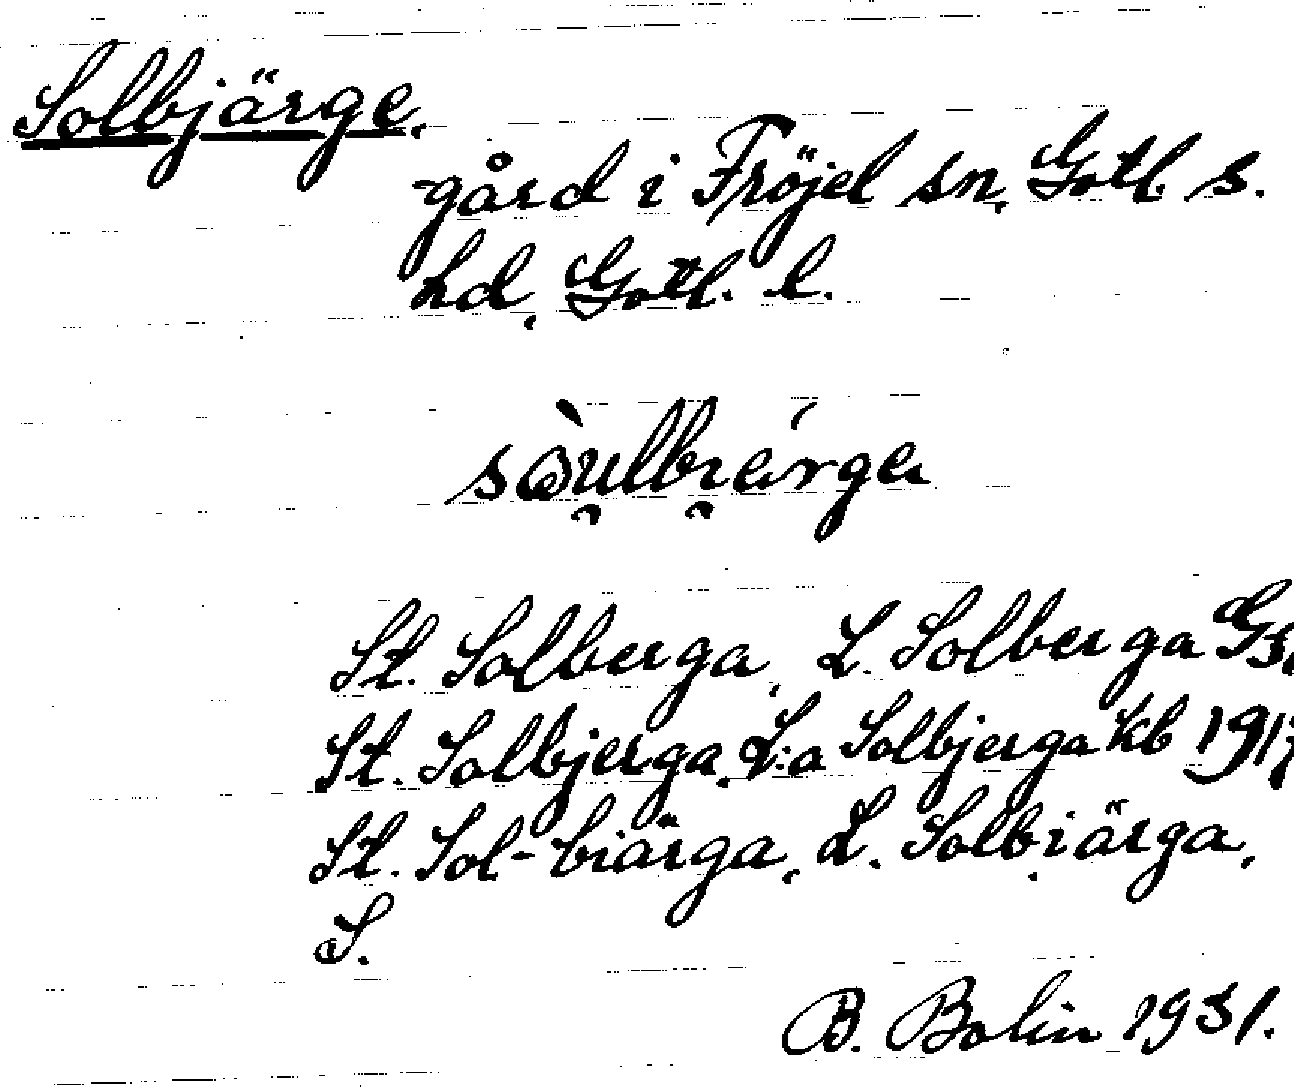 Solbjärge.
gård i Fröjel sn, Gotl. s.
hd, Gotl. l.
sòu̯lbi̯érga
St. Solberga, L. Solberga
St. Solbjerga, L:a Solbjerga kb
St. Sol-biärga, L. Solbiärga,
S.
B. Bolin 1931.